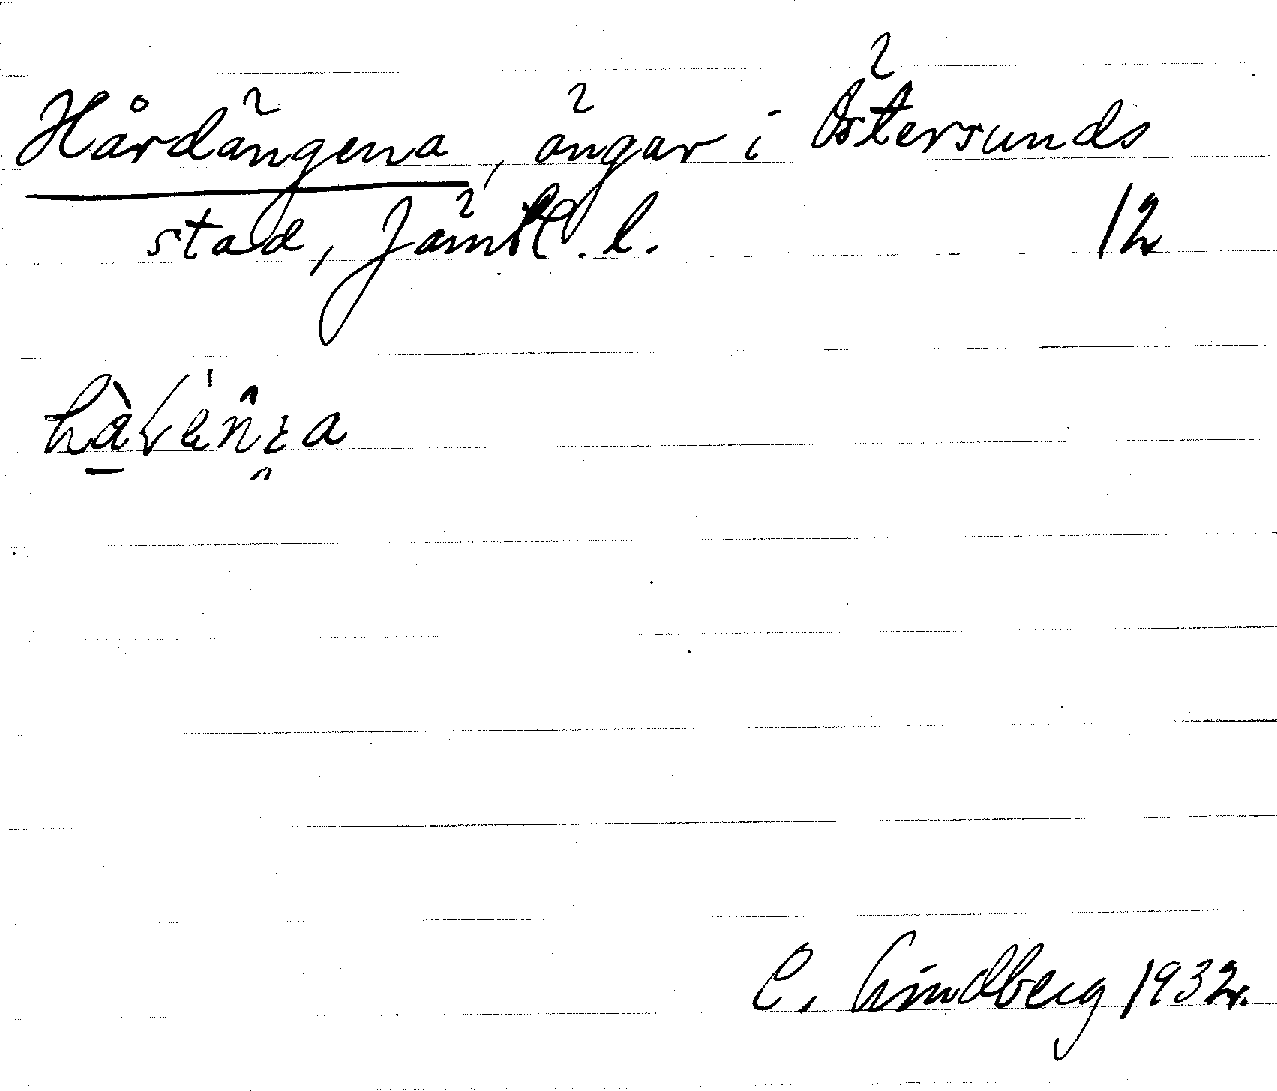 Hårdängena, ängar i Östersunds
stad, Jämtl. l. 12
C. Lindberg 1932.